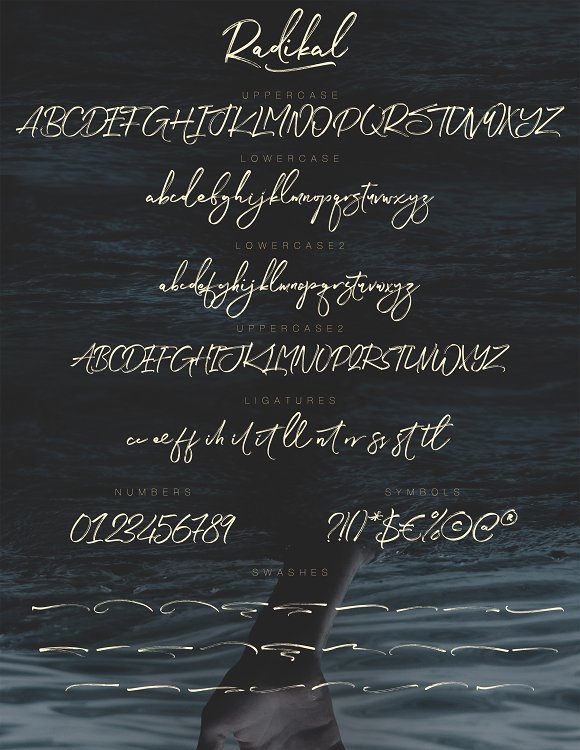 Radikal
UPPERCASE
ABCDEFGHIJKLMNOPQRSTUVWXYZ
LOWERCASE
abcdefghijklmnopqrstuvwxyz
LOWERCASE2
abcdefghijklmnopqrstuvwxyz
UPPERCASE2
ABCDEFGHIJKLMNOPQRSTUVWXYZ
LIGATURES
NUMBERS SYMBOLS
0123456789 ?!()*$€%©@®
SWASHES